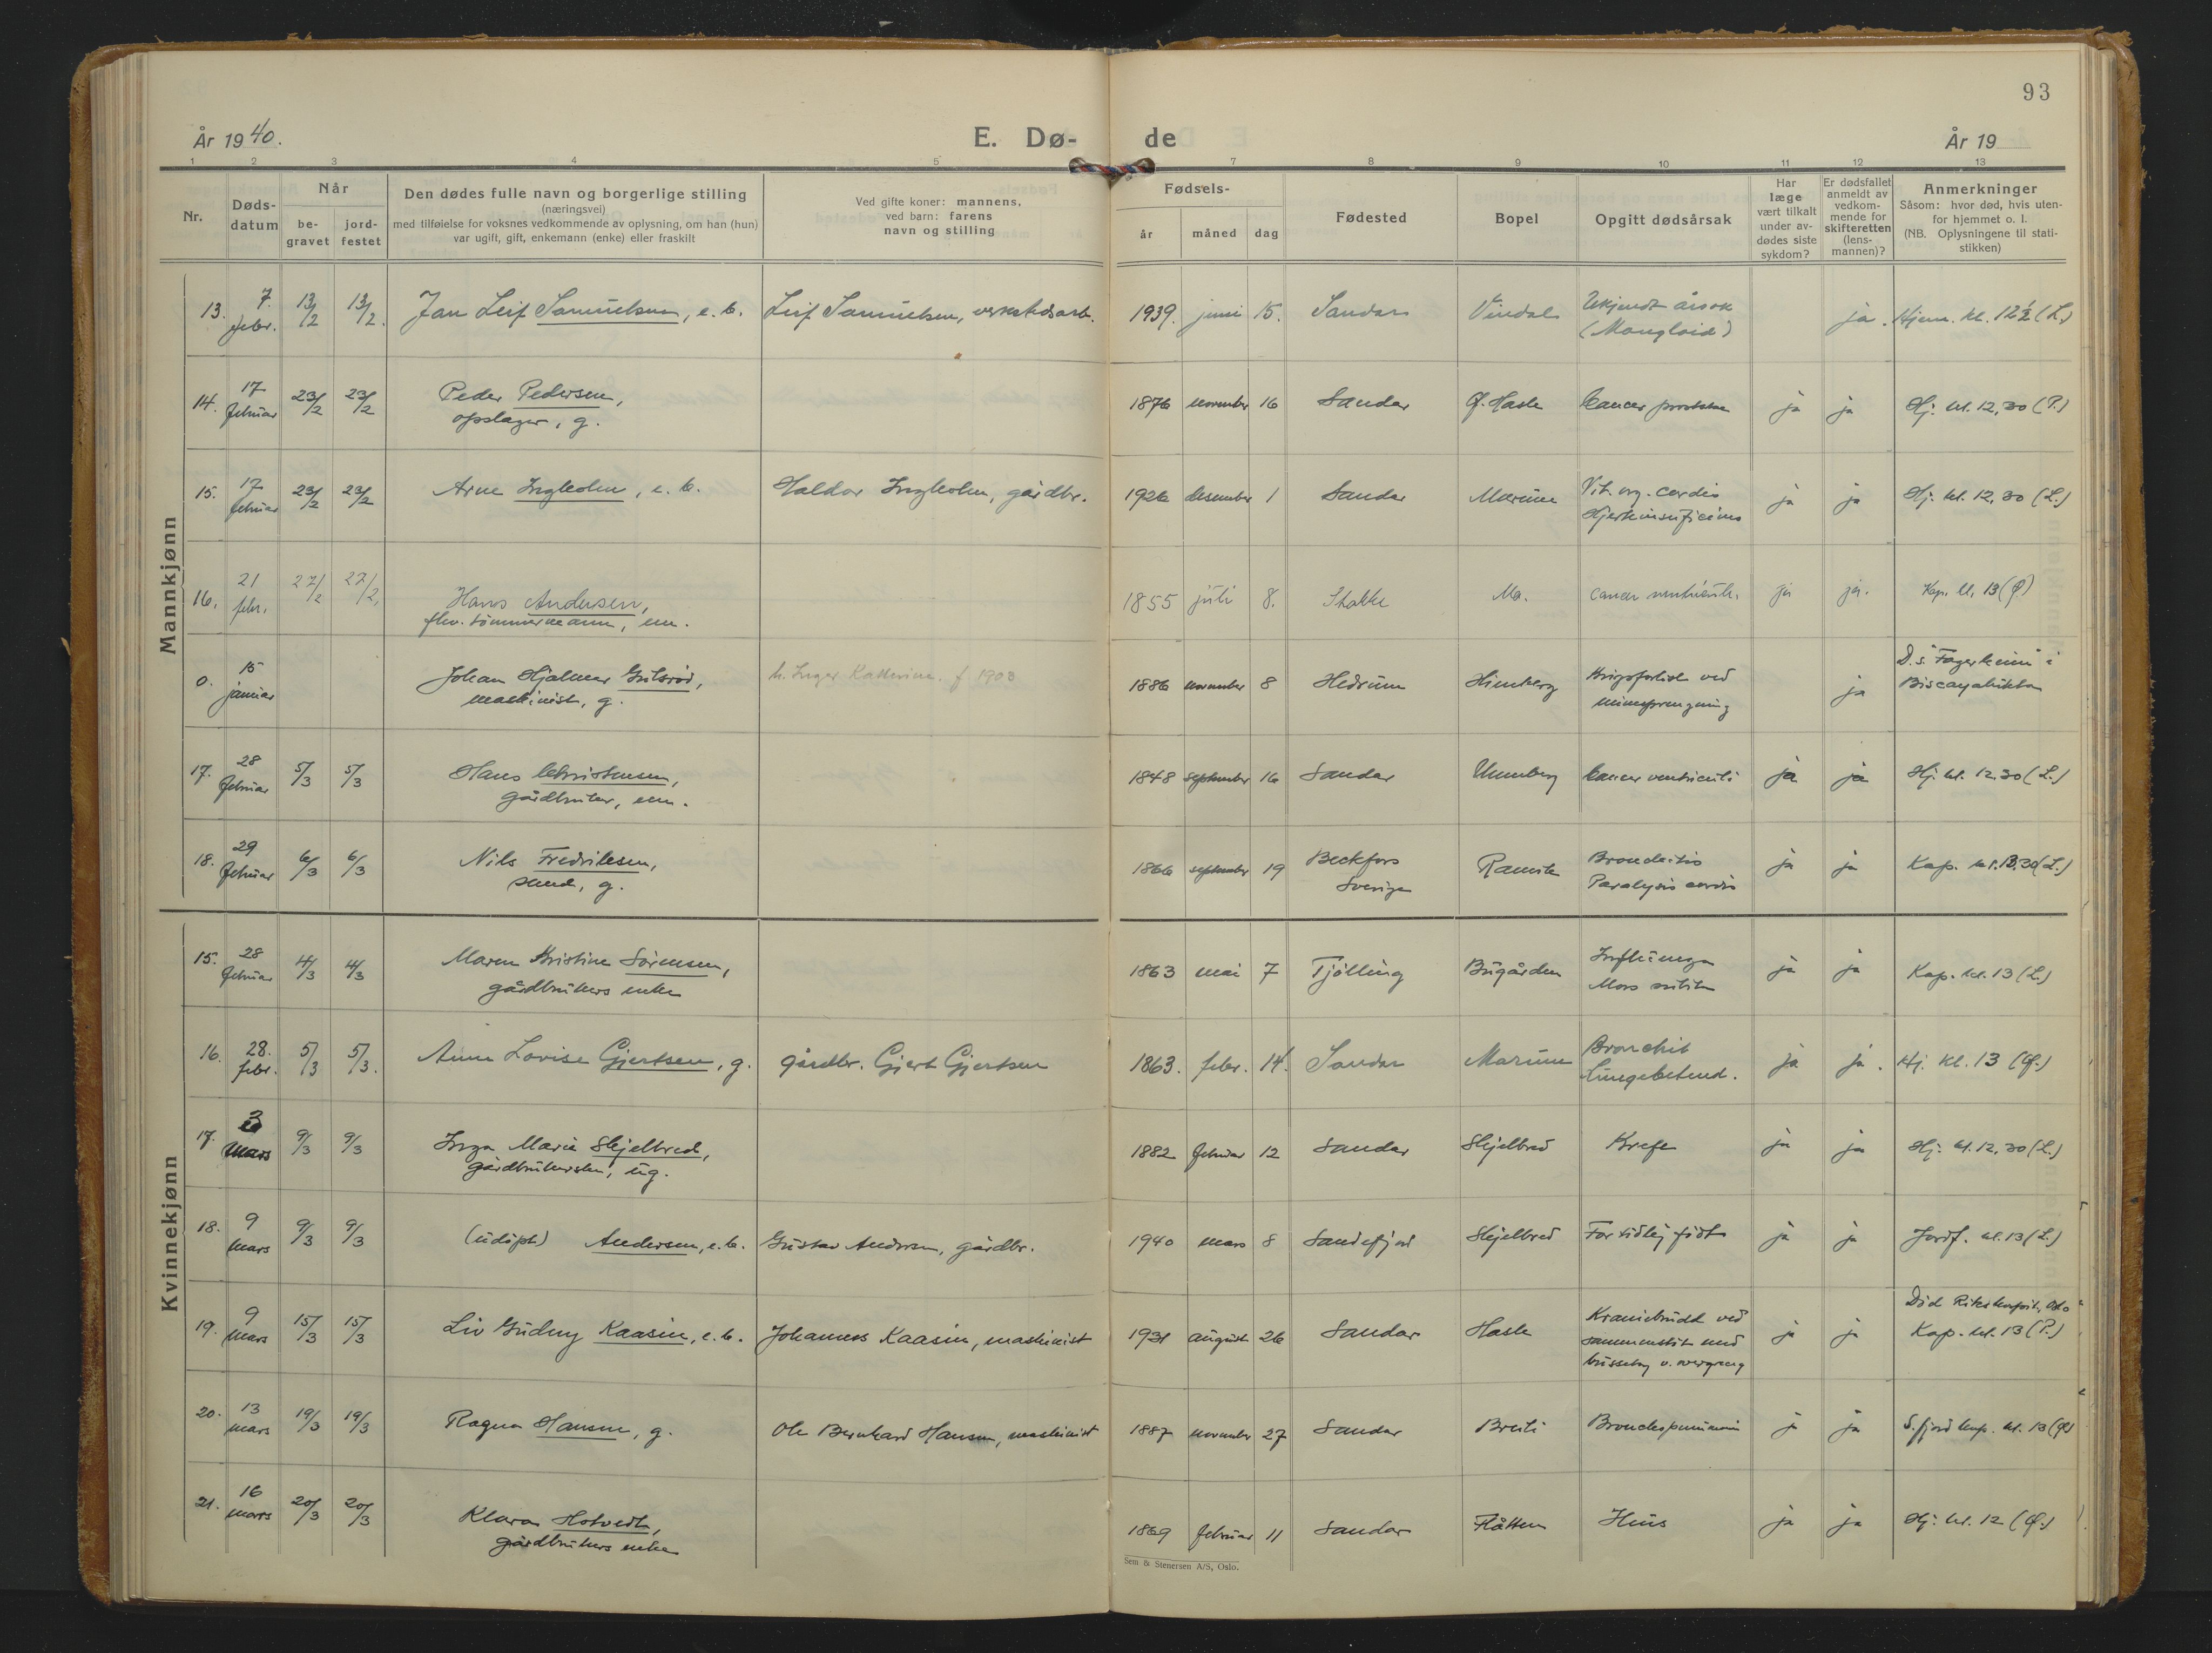 93
År 1940.
E. Dø-
de
År 19
1 2 3 4 5 7 8 9 10 11 12 13
Nr.
Døds-
datum
Når
be-
gravet
jord-
festet
Den dødes fulle navn og borgerlige stilling
(næringsvei)
med tilføielse for voksnes vedkommende av oplysning, om han (hun)
var ugift, gift, enkemann (enke) eller fraskilt
Ved gifte koner: mannens,
ved barn: farens
navn og stilling
Fødsels-
år måned dag
Fødested
Bopel
Opgitt dødsårsak
Har
læge
vært tilkalt
under av-
dødes siste
sykdom?
Er dødsfallet
anmeldt av
vedkom-
mende for
skifteretten
(lens-
mannen)?
Anmerkninger
Såsom: hvor død, hvis uten-
for hjemmet o. l.
(NB. Oplysningene til stati-
stikken)
Mannkjønn
13. 7. febr. 13/2 13/2. Jan Leif Samuelsen, e.b. Leif Samuelsen, verkstedsarb. 1939. juni 15. Sandar Vindal Ukjendt årsak
(Mongloid) ja. Hjem. kl. 12½ (L.)
14. 17 februar 23/2 23/2 Peder Pedersen,
opslager, g. 1876 november 16 Sandar Ø. Hasle Cancer prostatae ja ja Hj. kl. 12,30 (P.)
15. 17 februar 23/2 23/2 Arne Ingleolen, e.b. Haldor Ingleolen, gårdbr. 1926 desember 1 Sandar Marum Vit. org. cordis
Hjerteinsuficiens ja ja Hj. kl. 12,30 (L.)
16. 21 febr. 27/2 27/2. Hans Andersen,
fhv. tømmermann, em. 1855 juli 8. Stokke Mo. cancer ventriculi. ja ja. Kap. kl. 13 (Ø.)
0. 15 januar Johan Hjalmar Gulsrød,
maskinist, g. h. Inger Kathrine. f 1903 1886 november 8 Hedrum Himberg Krigsforlist ved
minesprengning ja D.s. "Fagerheim" i
Biscayabukta
17. 28 februar 5/3 5/3 Hans Christensen,
gårdbruker, em. 1848 september 16 Sandar Unneberg Cancer ventriculi ja ja Hj. kl. 12.30 (L.)
18. 29 februar 6/3 6/3 Nils Fredriksen,
smed, g. 1866 september 19 Beckfors
Sverige Ramvik Bronchitis
Paralysis cordis ja ja Kap. kl. 13.30 (L.)
Kvinnekjønn
15. 28 februar 4/3 4/3 Maren Kristine Sørensen,
gårdbrukers enke 1863 mai 7 Tjølling Bugården Influenza
Mors subita ja ja Kap. kl. 13 (L.)
16. 28. febr. 5/3 5/3. Anne Lovise Gjertsen, g. gårdbr. Gjert Gjertsen 1863. febr. 14. Sandar Marum Bronchit
Lungebetend. ja ja. Hj. kl. 13 (Ø.)
17. 3 mars 9/3 9/3 Inga Marie Skjelbred,
gårdbrukerske, ug. 1882 februar 12 Sandar Skjelbred Kreft ja ja Hj. kl. 12,30 (L.)
18. 9 mars 9/3 9/3 (udøpt) Andersen, e.b. Gustav Andersen, gårdbr. 1940 mars 8 Sandefjord Skjelbred For tidlig født ja ja Jordf. kl. 13 (L.)
19. 9 mars 15/3 15/3 Liv Gudny Kaasin, e.b. Johannes Kaasin, maskinist 1931 august 26 Sandar Hasle Kraniebrudd ved
sammenstøt med
bussetog v. overgang ja ja Død Rikshospit., Oslo
Kap. kl. 13 (P.)
20. 13 mars 19/3 19/3 Ragna Hansen, g. Ole Bernhard Hansen, maskinist 1887 november 27 Sandar Breili Bronchopneumoni ja ja S.fjord kap. kl. 13 (Ø.)
21. 16 mars 20/3 20/3 Klara Hotvedt,
gårdbrukers enke 1869 februar 11 Sandar Flåtten Hius ja ja Hj. kl. 12 (Ø.)
Sem & Stenersen A/S, Oslo.